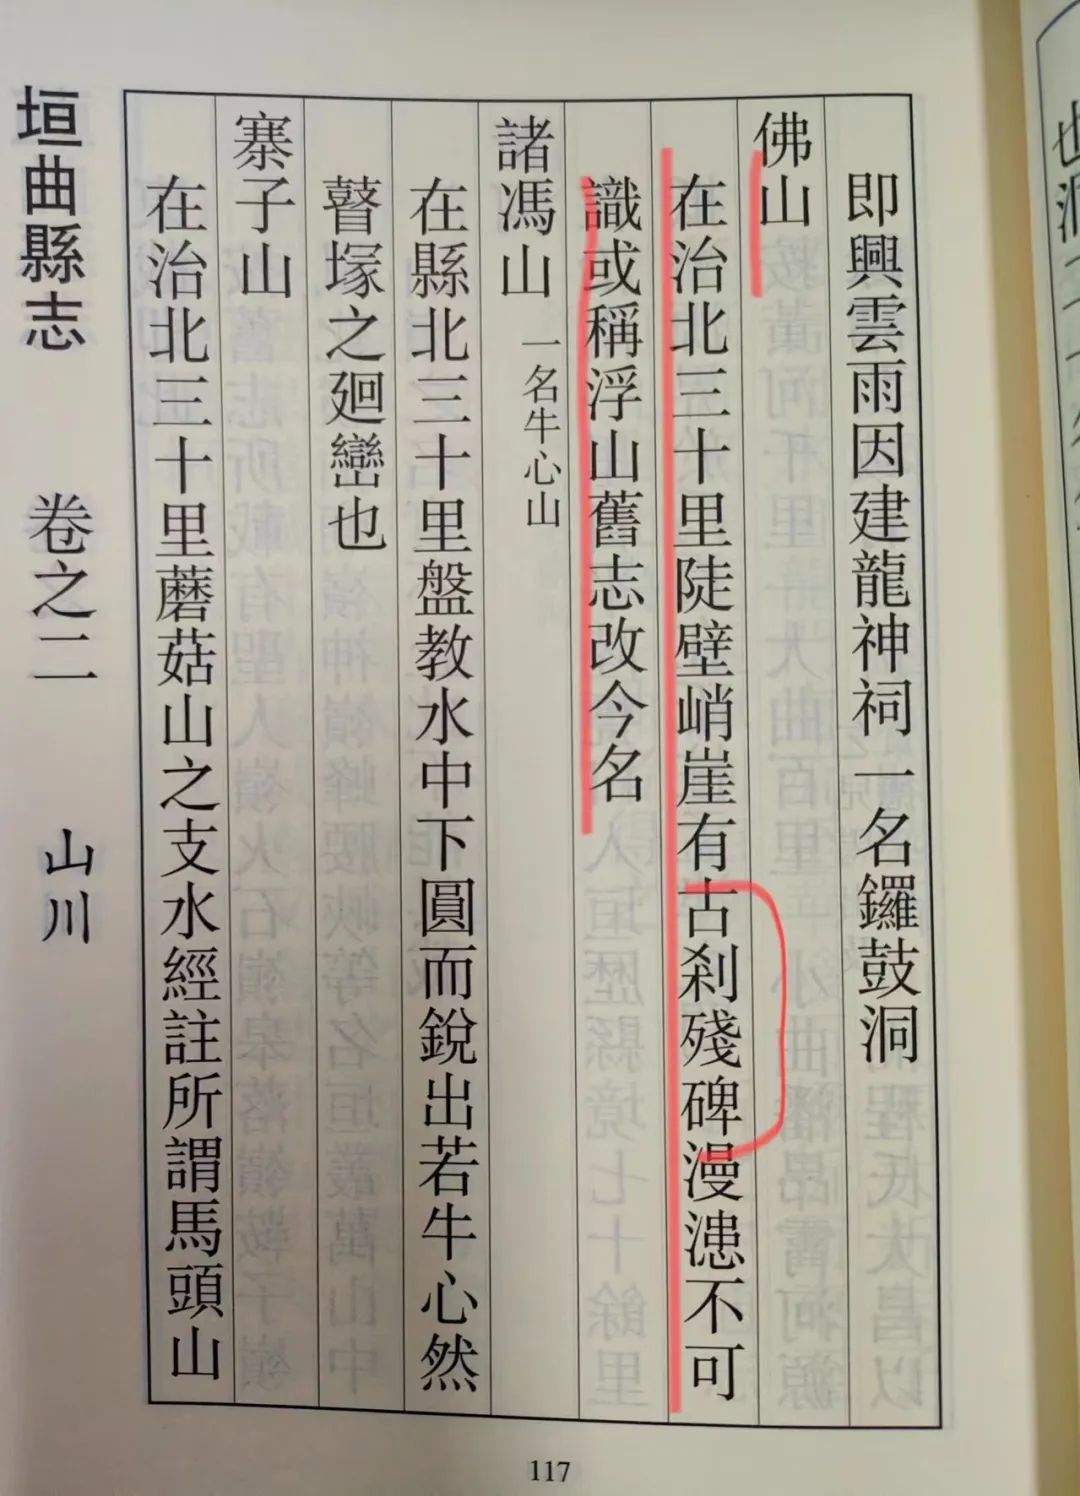 即興雲雨因建龍神祠一名鑼鼓洞
佛山
在治北三十里陡壁峭崖有古刹殘碑漫漶不可
識或稱浮山舊志改今名
諸馮山 一名牛心山
在縣北三十里盤教水中下圓而銳出若牛心然
瞽塚之廻巒也
寨子山
在治北三十里蘑菇山之支水經註所謂馬頭山
垣曲縣志 卷之二 山川
117